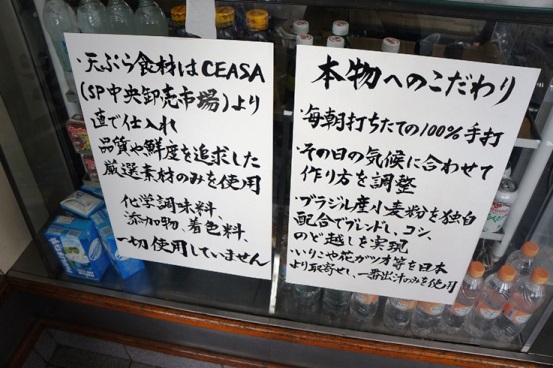 ・天ぷら食材はCEASA
(SP中央卸売市場)より
直で仕入れ
品質や鮮度を追求した
厳選素材のみを使用
化学調味料、
添加物、着色料、
一切使用していません
本物へのこだわり
・毎朝打ちたての100%手打
・その日の気候に合わせて
作り方を調整
・ブラジル産小麦粉を独自
配合でブレンドし、コシ、
のど越しを実現
・いりこや花ガツオ等を日本
より取寄せし、一番出汁のみを使用